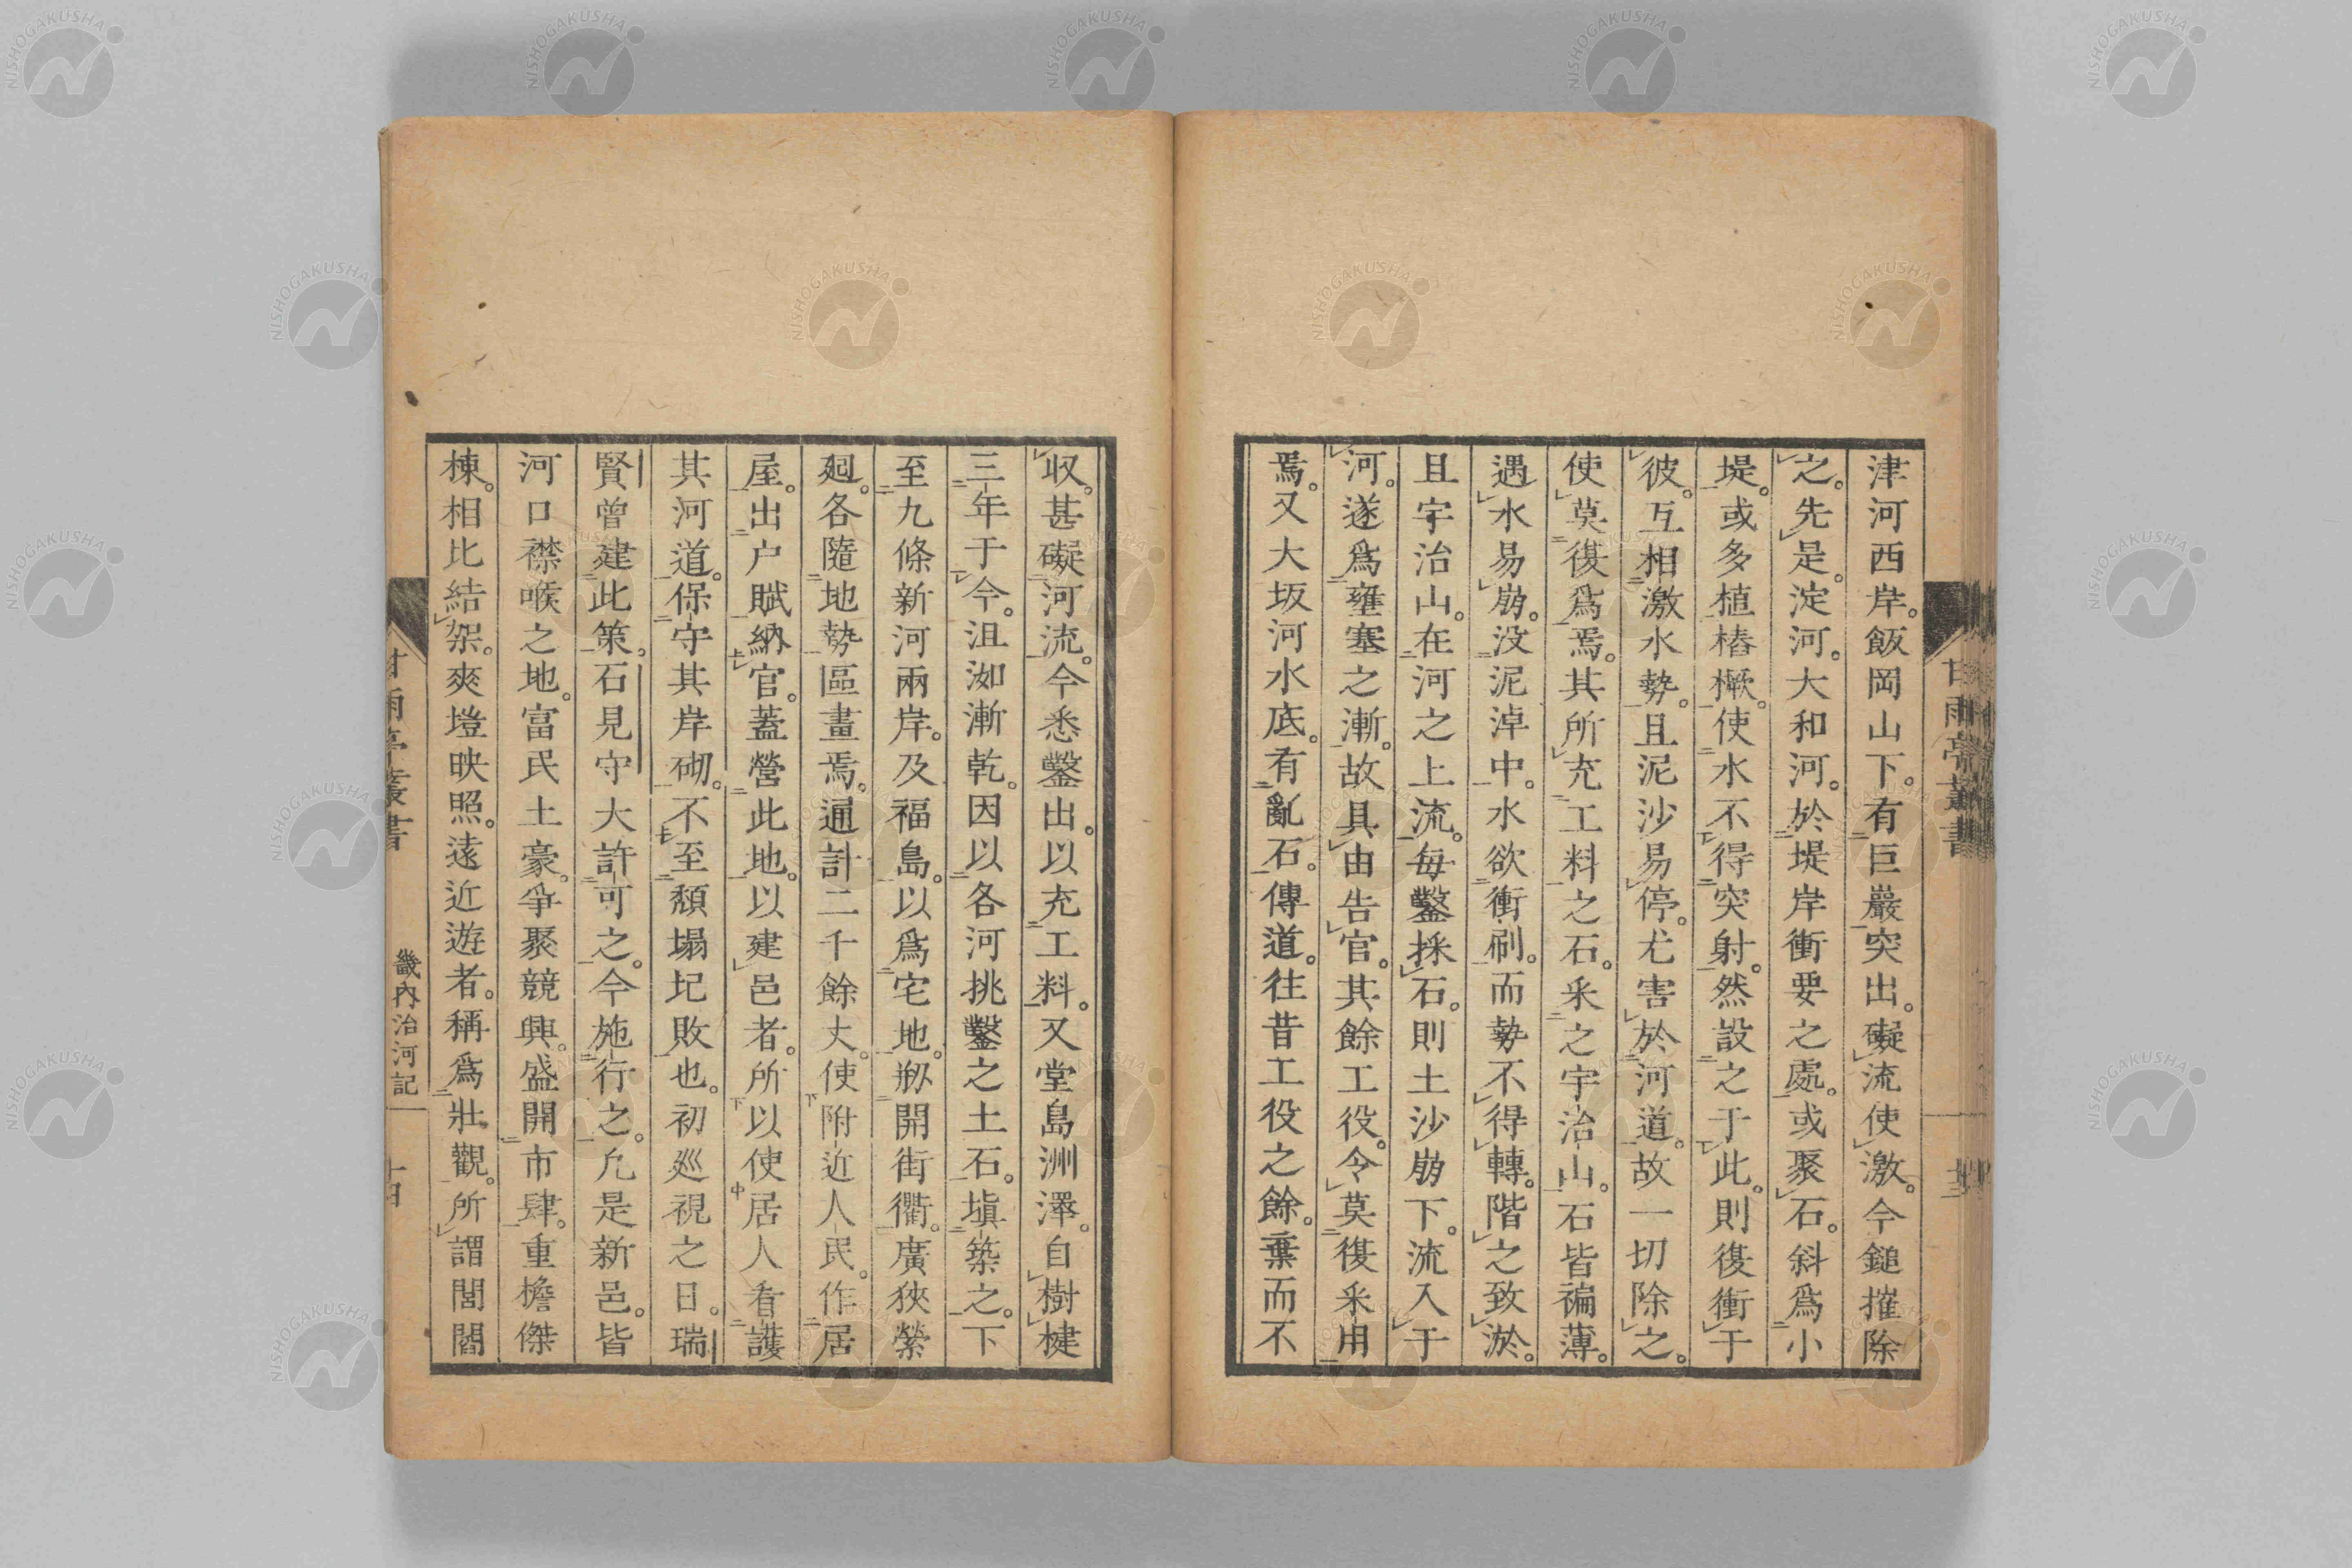 津河西岸。飯岡山下。有巨巖突出。礙流使激。今鎚摧除
之。先是。淀河。大和河。於堤岸衝要之處。或聚石。斜爲小
堤。或多植樁橛。使水不得突射。然設之于此。則復衝于
彼。互相激水勢。且泥沙易停。尤害於河道。故一切除之。
使莫復爲焉。其所充工料之石。釆之宇治山。石皆褊薄。
遇水易崩。没泥淖中。水欲衝刷。而勢不得轉。階之致淤。
且宇治山。在河之上流。每鑿採石。則土沙崩下。流入于
河。遂爲壅塞之漸。故具由告官。其餘工役。令莫復釆用
焉。又大坂河水底。有亂石。傳道。往昔工役之餘。棄而不
収。甚礙河流。今悉鑿出。以充工料。又堂島洲澤。自樹楗
三年于今。沮洳漸乾。因以各河挑鑿之土石。塡築之。下
至九條新河兩岸。及福島。以爲宅地。剏開街衢。廣狹縈
廻。各隨地勢區畫焉。通計二千餘丈。使附近人民。作居
屋。出户賦納官。蓋營此地。以建邑者。所以使居人看護
其河道。保守其岸砌。不至頹塌圮敗也。初巡視之日。瑞
賢曾建此策。石見守大許可之。今施行之。允是新邑。皆
河口襟喉之地。富民土豪。爭聚競興。盛開市肆。重檐傑
棟。相比結架。爽塏映照。遠近遊者。稱爲壯觀。所謂閭閻
甘雨亭叢書
畿內治河記
甘雨亭叢書
NISHOGAKUSHA